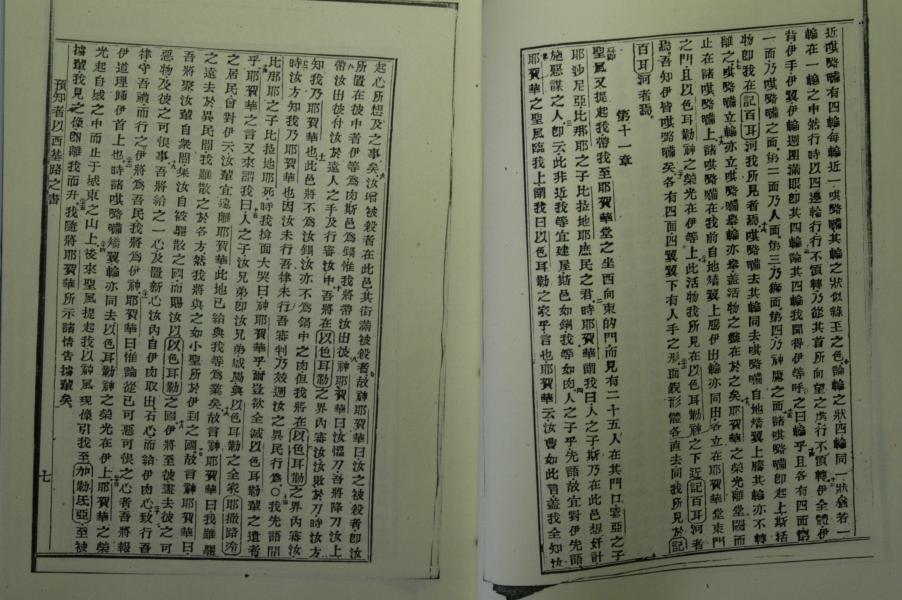 近𠵽㗲𠾇有四輪每輪近一𠵽㗲𠾇其輪之狀似綠玉之色論輪之狀四輪同一狀猶若一
輪在一輪之中然行時以四邊輪行行不須轉乃從其首所向望之處行不須轉伊全體伊
背伊手伊翼伊輪週圍滿眼即其四輪論其四輪我聞得伊等呼之曰輪乎且各有四面第
一面乃𠵽㗲𠾇之面第二乃人面第三乃獅面第四乃神鷹之面諸𠵽㗲𠾇即起上斯活
物即我在記百耳河我所見者焉𠵽㗲𠾇去其輪同去𠵽㗲𠾇自地矯翼上騰其輪亦不轉
離之𠵽㗲𠾇立輪亦立𠵽㗲𠾇舉輪亦舉蓋活物之靈在於之矣耶賀華之榮光離堂閾而
止在諸𠵽㗲𠾇上諸𠵽㗲𠾇在我前自地矯翼上騰伊出輪亦同出各立在耶賀華堂東門
之門且以色耳勒神之榮光在伊等上此活物我所見在以色耳勒神之下近記百耳河者
焉吾知伊皆𠵽㗲𠾇矣各有四面四翼翼下有人手之形面貌形體各直去同我所見於記
百耳河者焉
第十一章
聖風又提起我帶我至耶賀華堂之坐西向東的門而見有二十五人在其門口
耶沙尼亞比那耶之子比拉地耶庶民之君時耶賀華謂我曰人之子斯乃在此邑想奸計
施惡謀之人即云此非近我等宜建屋斯邑如鍋我等如肉人之子乎先語故宜對伊先語
耶賀華之聖風臨我上謂我曰以色耳勒之家乎言也耶賀華云汝曹如此言蓋我全知汝
起心所想及之事矣汝增被殺者在此邑其街滿被殺者故神耶賀華曰汝之被殺者即汝
所置在彼中者伊等為肉斯邑為鍋惟我將帶汝出彼神耶賀華曰汝懼刀吾將降刀汝上
帶汝出彼付汝於遠人之手及行審汝中吾將在以色耳勒之界內審汝汝敗於刀時汝方
知我乃耶賀華也此邑將不為汝鍋汝亦不為鍋中之肉但我將在以色耳勒之界內審汝
時汝方知我乃耶賀華也因汝未行吾律未行吾審判乃效週汝之異民行為○我先語間
比那耶之子比拉地耶死時我掩面大哭曰神耶賀華乎爾豈欲全滅以色耳勒輩之遺者
乎耶賀華之言又來謂我曰人之子汝兄弟即汝兄弟城屬與以色耳勒之全家耶撒路𠷥
之居民曾對伊云汝輩宜遠離耶賀華此地已給與我等為業矣故言神耶賀華曰我雖驅
之遠去於異民間我雖散之於各方然我將與之如小聖所於伊到之國故言神耶賀華曰
吾將聚汝輩自衆間集汝自被驅散之國而賜汝以以色耳勒之國伊將至彼盡去彼之可
惡物及彼之可恨事吾將給之一心及置新心汝內自伊肉取出石心而給伊肉心致行吾
律守吾禮而行之伊將為吾民我將為伊神耶賀華曰惟論從已可惡可恨之心者吾將報
伊道理歸伊首上也時諸𠵽㗲𠾇矯翼輪亦同去以色耳勒神之榮光在伊上耶賀華之榮
光起自城之中而止于城東之山上後來聖風提起我以神風現像引我至加勒氐亞至被
擄輩我見之像即離我而升我隨將耶賀華所示諸情告擄輩矣
預知者以西基路之書
七